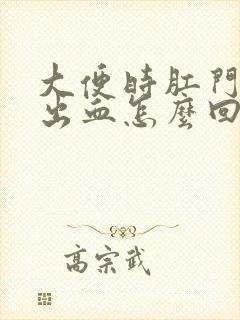 大便時肛門
出血怎麼回
高宗武